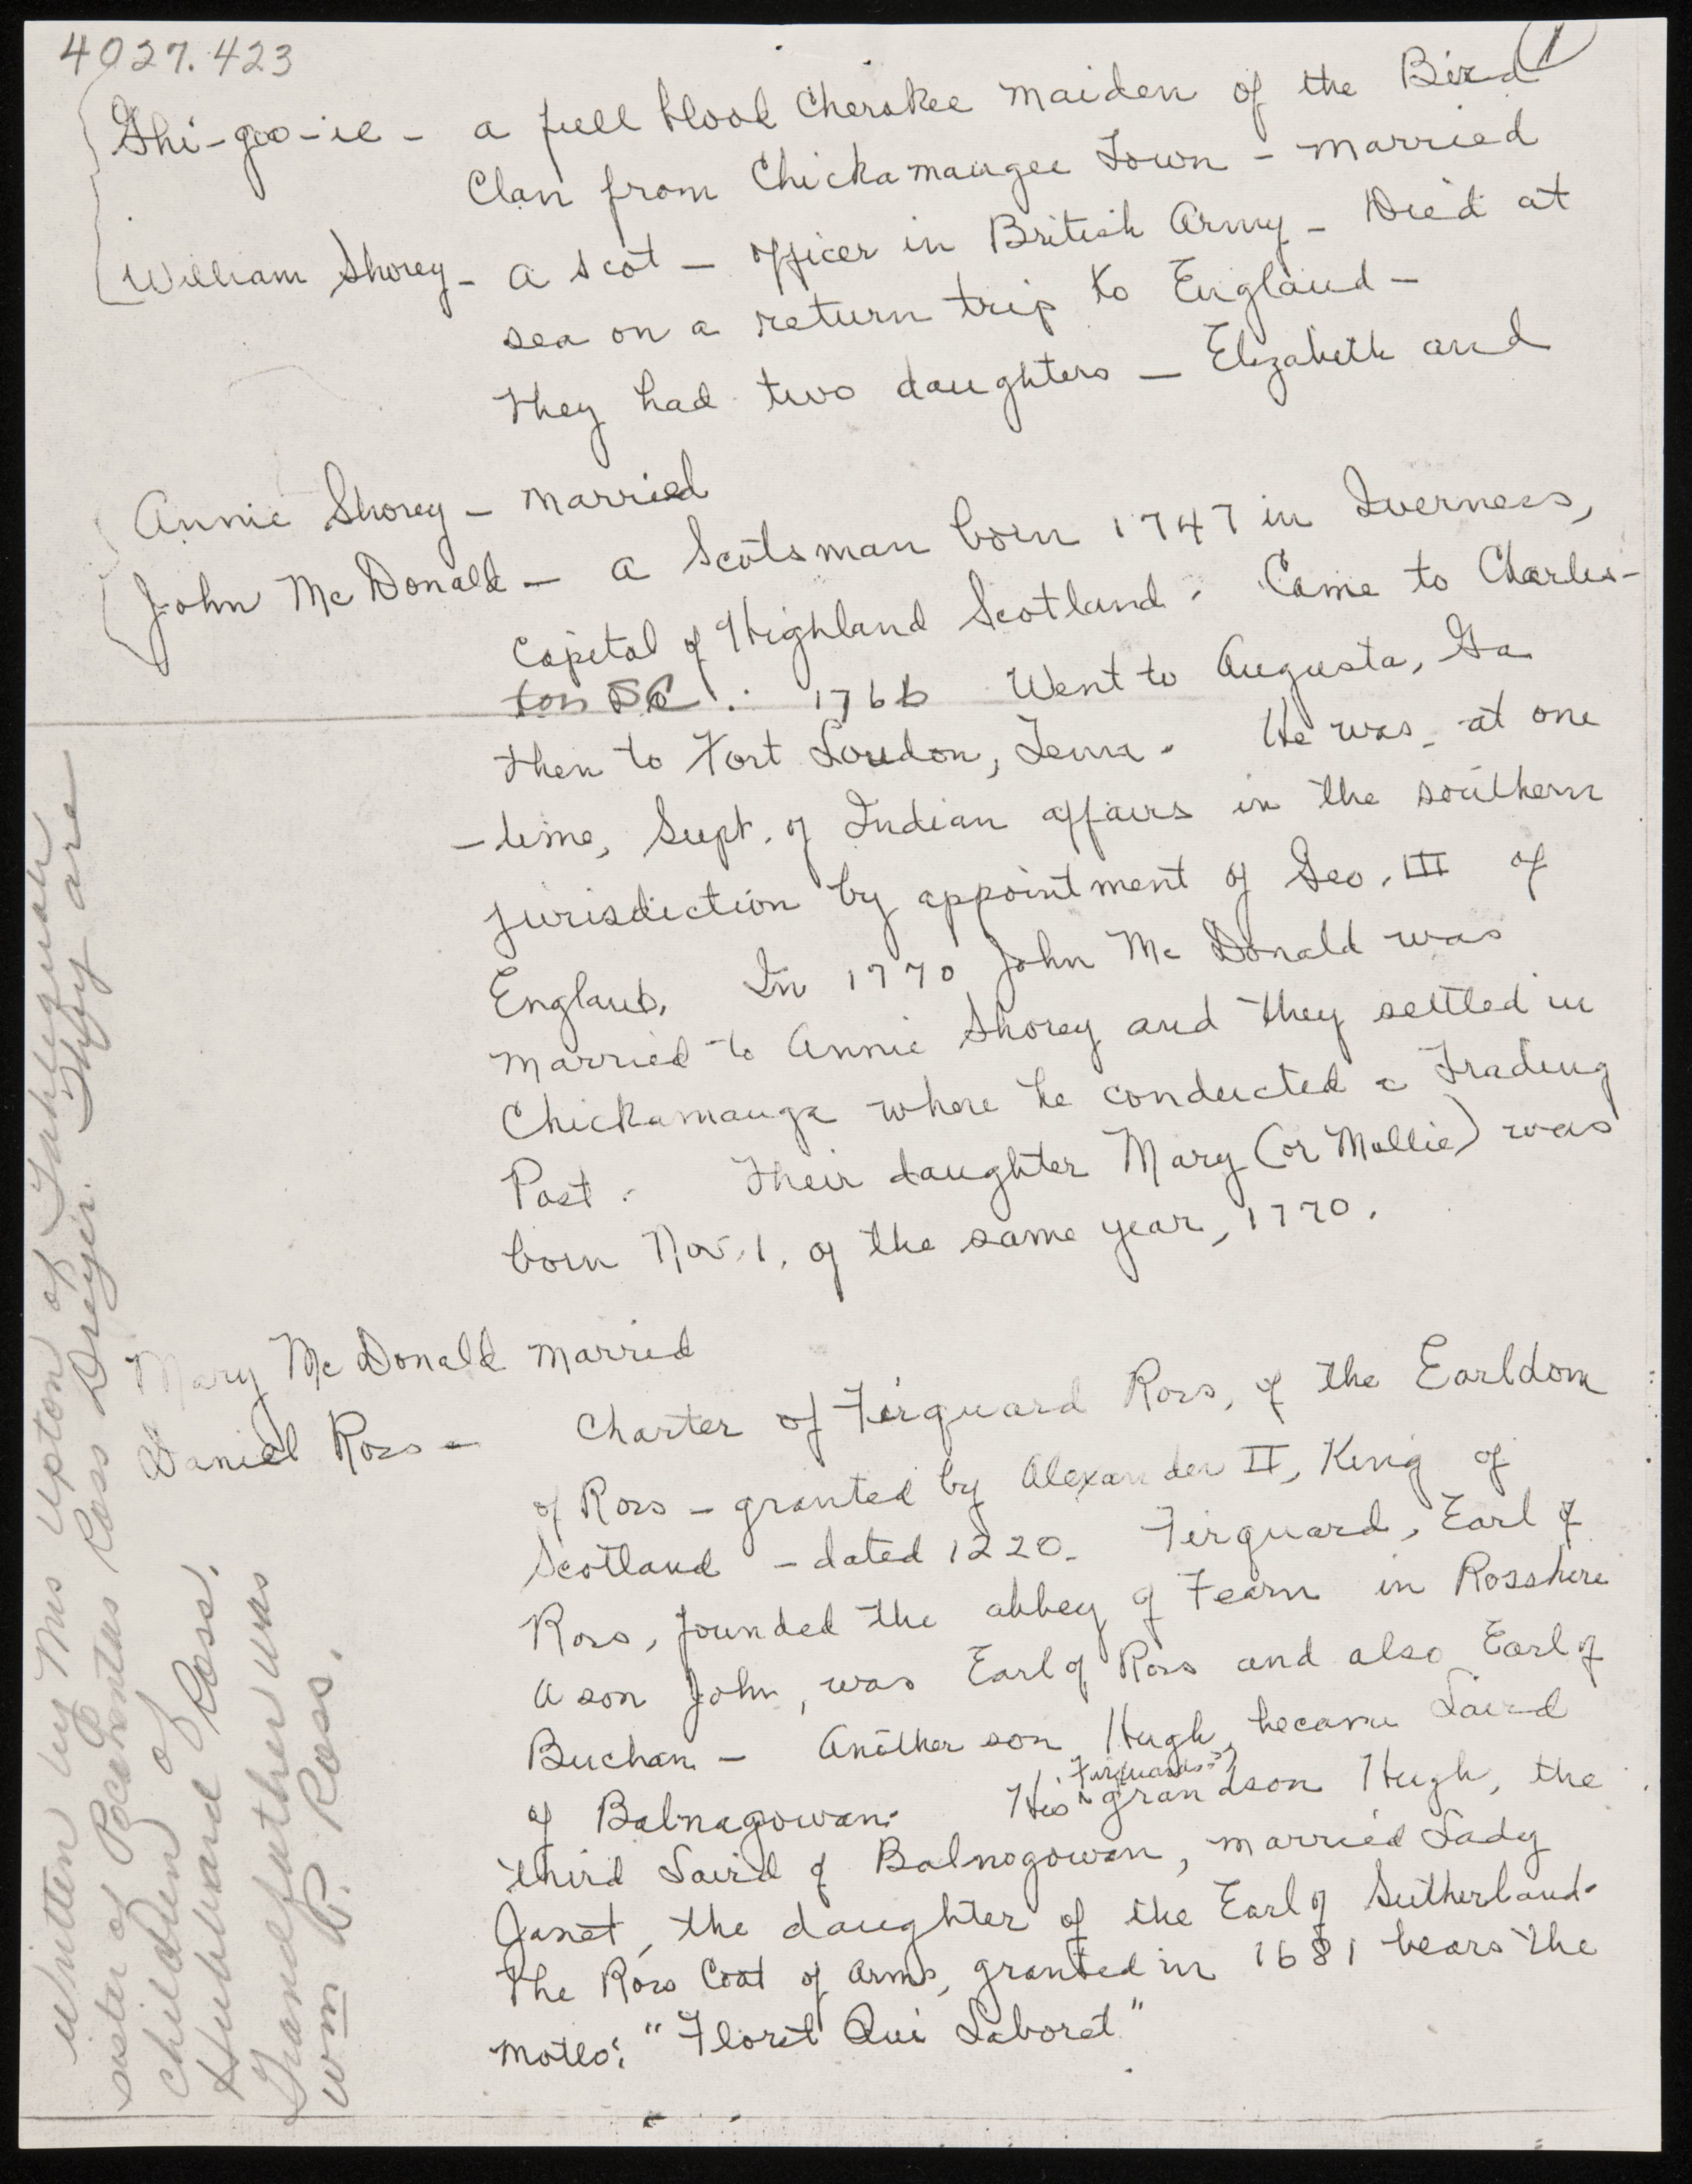 4027.423
1
Ghi-goo-ie - a full blood Cherokee maiden of the Bird
Clan from Chickamaugee Town - married
William Shorey - a Scot - officer in British Army - Died at
sea on a return trip to England -
They had two daughters - Elizabeth and
Annie Shorey - married
John McDonald - a Scotsman born 1747 in Iverness,
Capital of Highland Scotland. Came to Charles-
ton SC. 1766 Went to Augusta, Ga
then to Fort Loudon, Tenn. He was, at one
-time, Supt. of Indian affairs in the southern
jurisdiction by appointment of Geo. III of
England. In 1770 John McDonald was
married to Annie Shorey and they settled in
Chickamauga where he conducted a Trading
Post. Their daughter Mary (or Mollie) was
born Nov. 1, of the same year, 1770.
Mary McDonald married
Daniel Ross - Charter of Firquard Ross, of the Earldom
of Ross - granted by Alexander II, King of
Scotland - dated 1220. Firquard, Earl of
Ross, founded the abbey of Fearn in Rosshire
A son John, was Earl of Ross and also Earl of
Buchan - Another son Hugh, became Laird
of Balnagowan. His Firquards grandson Hugh, the
third Laird of Balnogowan, married Lady
Janet, the daughter of the Earl of Sutherland.
The Ross Coat of Arms, granted in 1681 bears the
motto: "Floret Qui Laboret"
Written by Mrs Upton of Tahlequah
sister of Pocahontas Ross Dreyir. They are
children of
Hubbard Ross.
Grandfather was
Wm P. Ross.